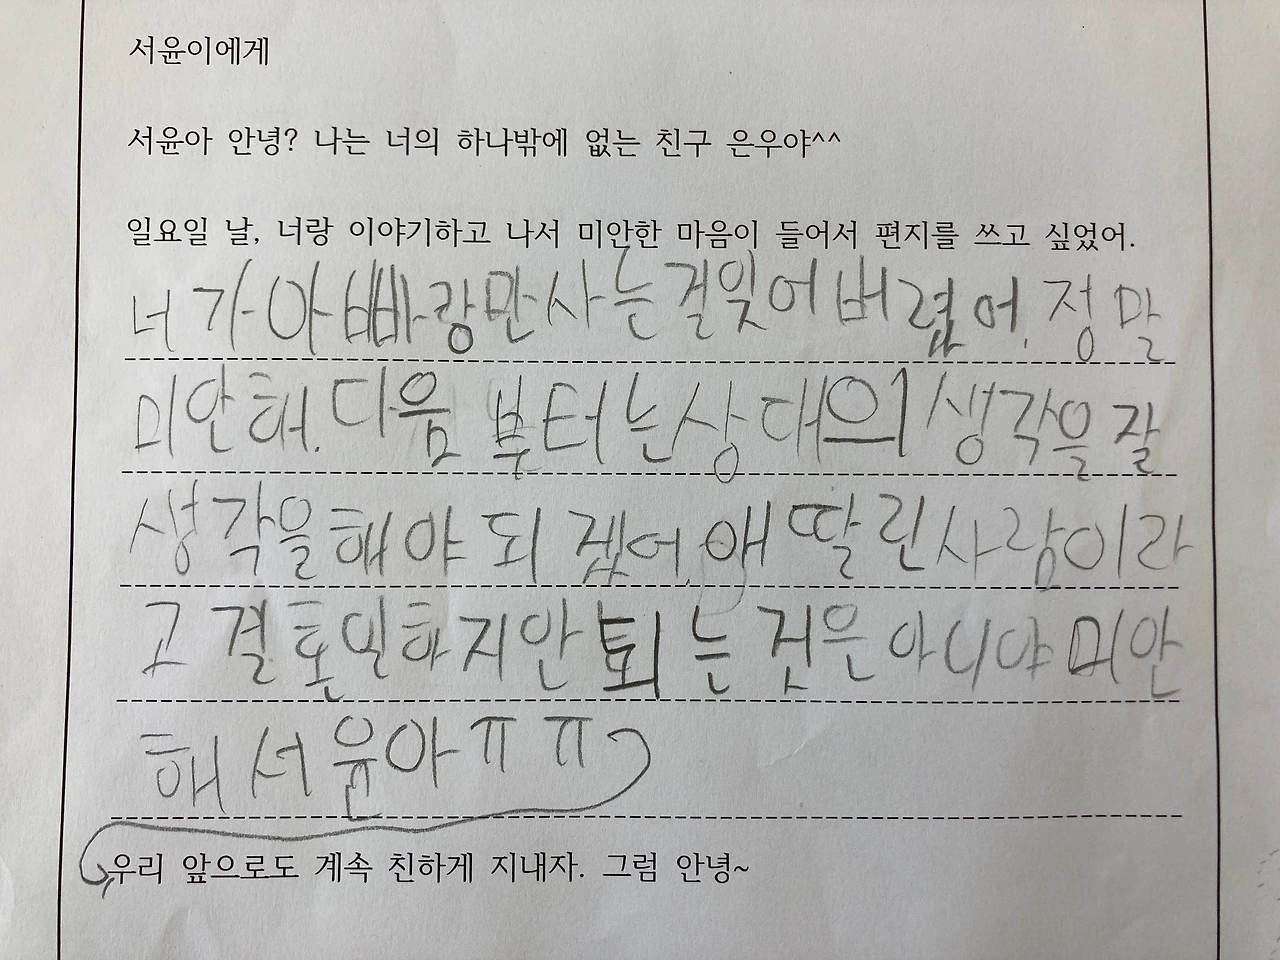 서윤이에게
서윤아 안녕? 나는 너의 하나밖에 없는 친구 은우야^^
일요일 날, 너랑 이야기하고 나서 미안한 마음이 들어서 편지를 쓰고 싶었어.
너가 아빠랑만 사는걸 잊어버렸어. 정말
미안해. 다음 부터는 상대의 생각을 잘
생각을 해야 되겠어. 애 딸린 사람이라
고 결혼일하지안퇴는 것은 아니야 미안
해 서윤아 ㅠㅠ
우리 앞으로도 계속 친하게 지내자. 그럼 안녕~